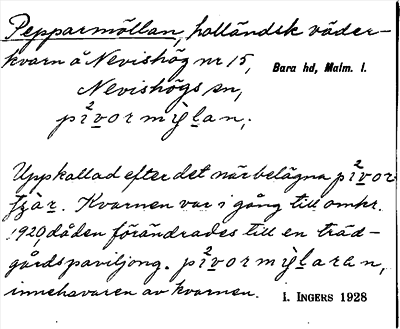 Pepparmöllan, holländsk väder-
kvarn å Nevishög nr 15, Bara hd, Malm. l.
Nevishögs sn,
pi²vormỳlan;
Uppkallad efter det närbelägna pi²vor
. Kvarnen var i gång till omkr.
1920, då den förändrades till en träd-
gårdspaviljong. pi²vormỳlaran,
innehavaren av kvarnen. i. INGERS 1928